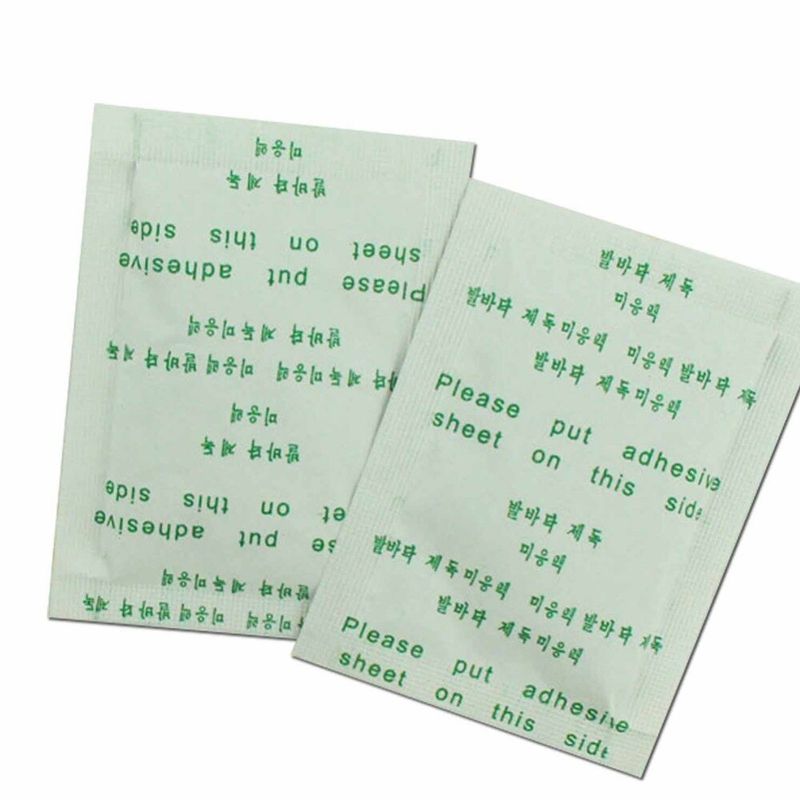 미응력 미응력 발바닥 제독
발바닥 제독미응력
put adhesive
on this side
발바닥 제독
미응력
바닥 제독미응력 미응력 발바닥 제독
발바닥 제독미응력
Please put adhesive
sheet on this side
발바닥 제독
미응력
발바닥 제독
미응력
발바닥 제독미응력 미응력 발바닥 제독
발바닥 제독미응력
Please put adhesive
sheet on this side
발바닥 제독
미응력
발바닥 제독미응력 미응력 발바닥 제독
발바닥 제독미응력
Please put adhesive
sheet on this side